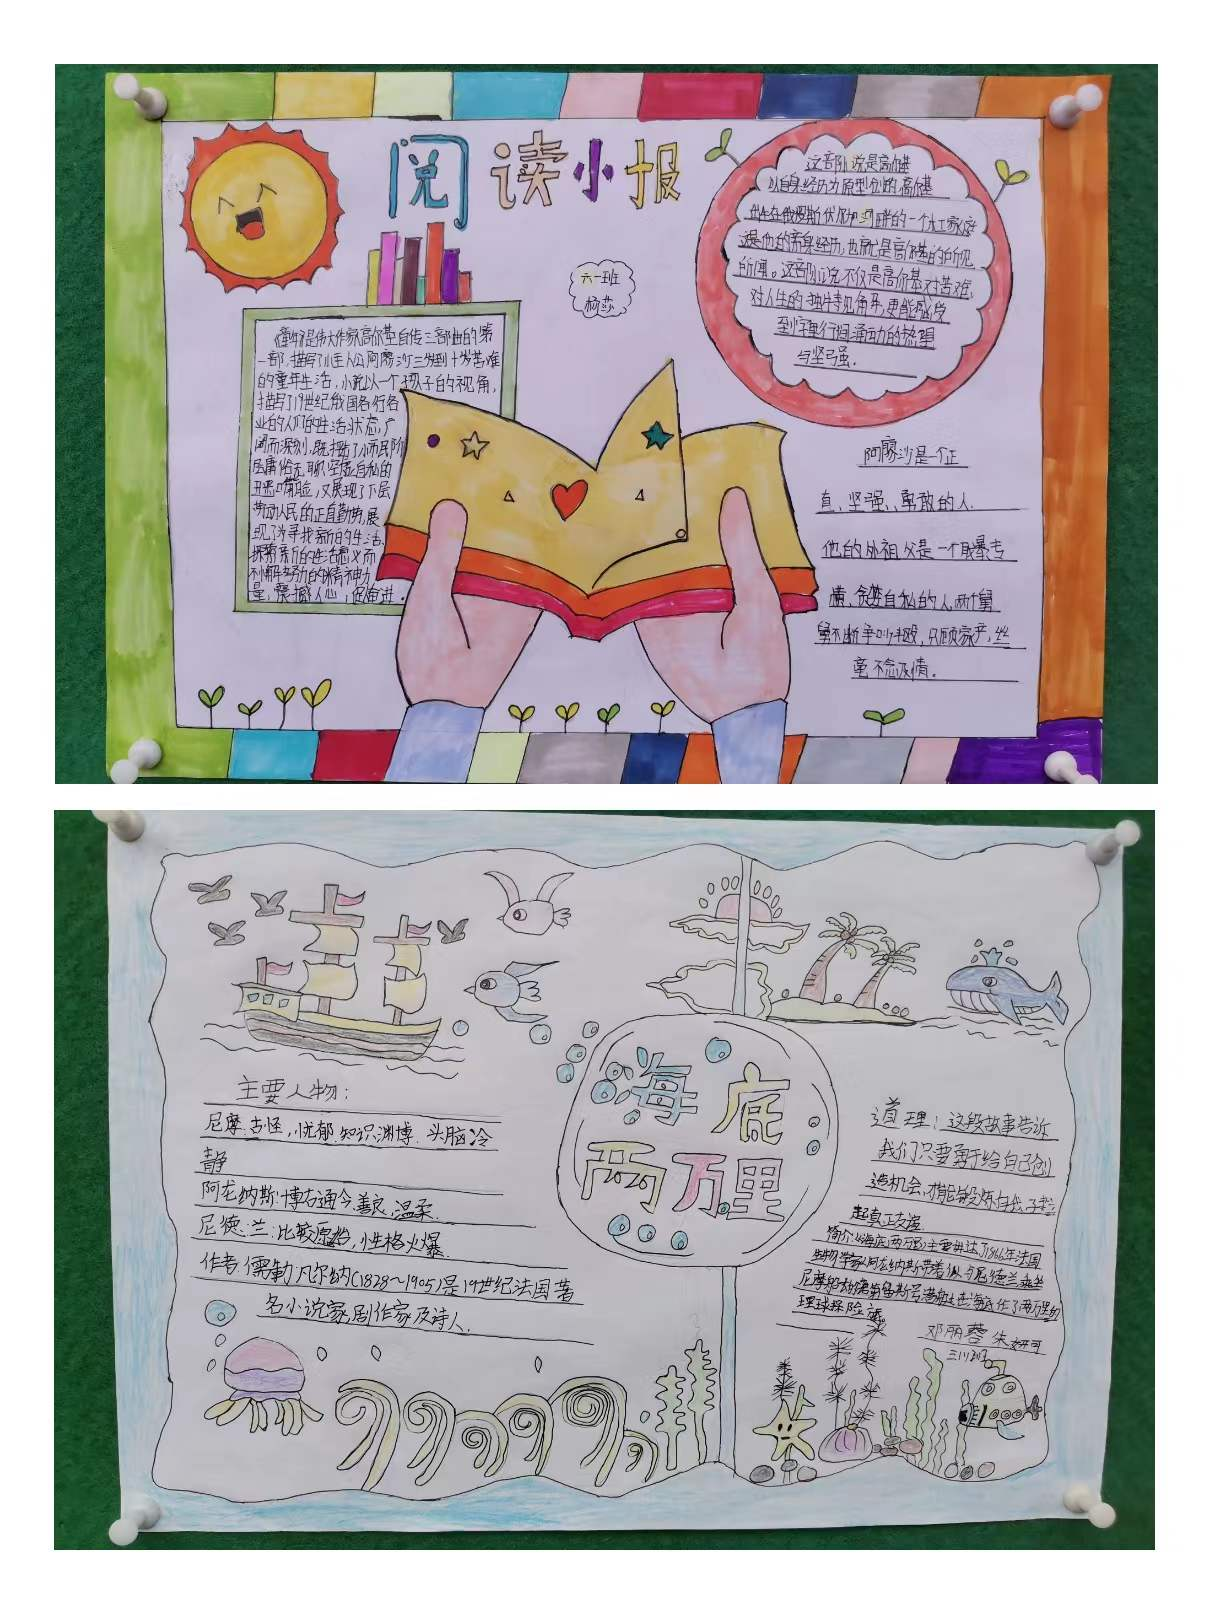 阅读小报
六一班
杨莎
《童年》是伟大作家高尔基自传三部曲的第
一部,描写了小主人公阿廖沙三岁到十岁苦难
的童年生活,小说以一个孩子的视角,
描写了19世纪俄国各行各
业的人们的生活状态,广
阔而深刻,既描了小市民阶
层庸俗无聊空虚自私的
丑恶嘴脸,又展现了下层
劳动人民的正直勤劳,展
现了为寻找新的生活、
探索新的生活意义而
不懈努力的精神力
量,震撼人心,促奋进。
这部小说是高尔基
以自身经历为原型创的高尔基
出生在俄罗斯伏尔加河畔的一个木工家庭
这是他的亲身经历,也就是高尔基的所见
所闻。这部小说不仅是高尔基对苦难、
对人生的独特见角牙,更能感受
到字里行间涌动的热望
与坚弓强.
阿廖沙是一个正
直、坚强、勇敢的人.
他的外祖父是一个残暴专
横、贪婪自私的人,两个舅
舅不断争吵斗殴,只顾家产,丝
毫不念及情。
海底
两万里
主要人物:
尼摩:古怪,忧郁.知识渊博.头脑冷
静
阿龙纳斯:博古通今,善良,温柔.
尼德.兰:比较原始,性格火爆.
作者:儒勒.凡尔纳(1828~1905)是19世纪法国著
名小说家,剧作家及诗人.
道理:这段故事告诉
我们只要勇于给自己创
造机会,才能锻炼自我,
起真正支撑
简介:《海底两万里》主要讲述了1866年法国
生物学家阿龙纳斯带着仆人与尼德兰乘坐
理球探险
邓丽蓉 朱妍可